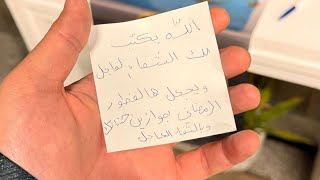 الله يكتب
لك الشفاء العاجل
ويجعل هالفطور
الرمضاني بموازين حسناتك
وبالشفاء العاجل